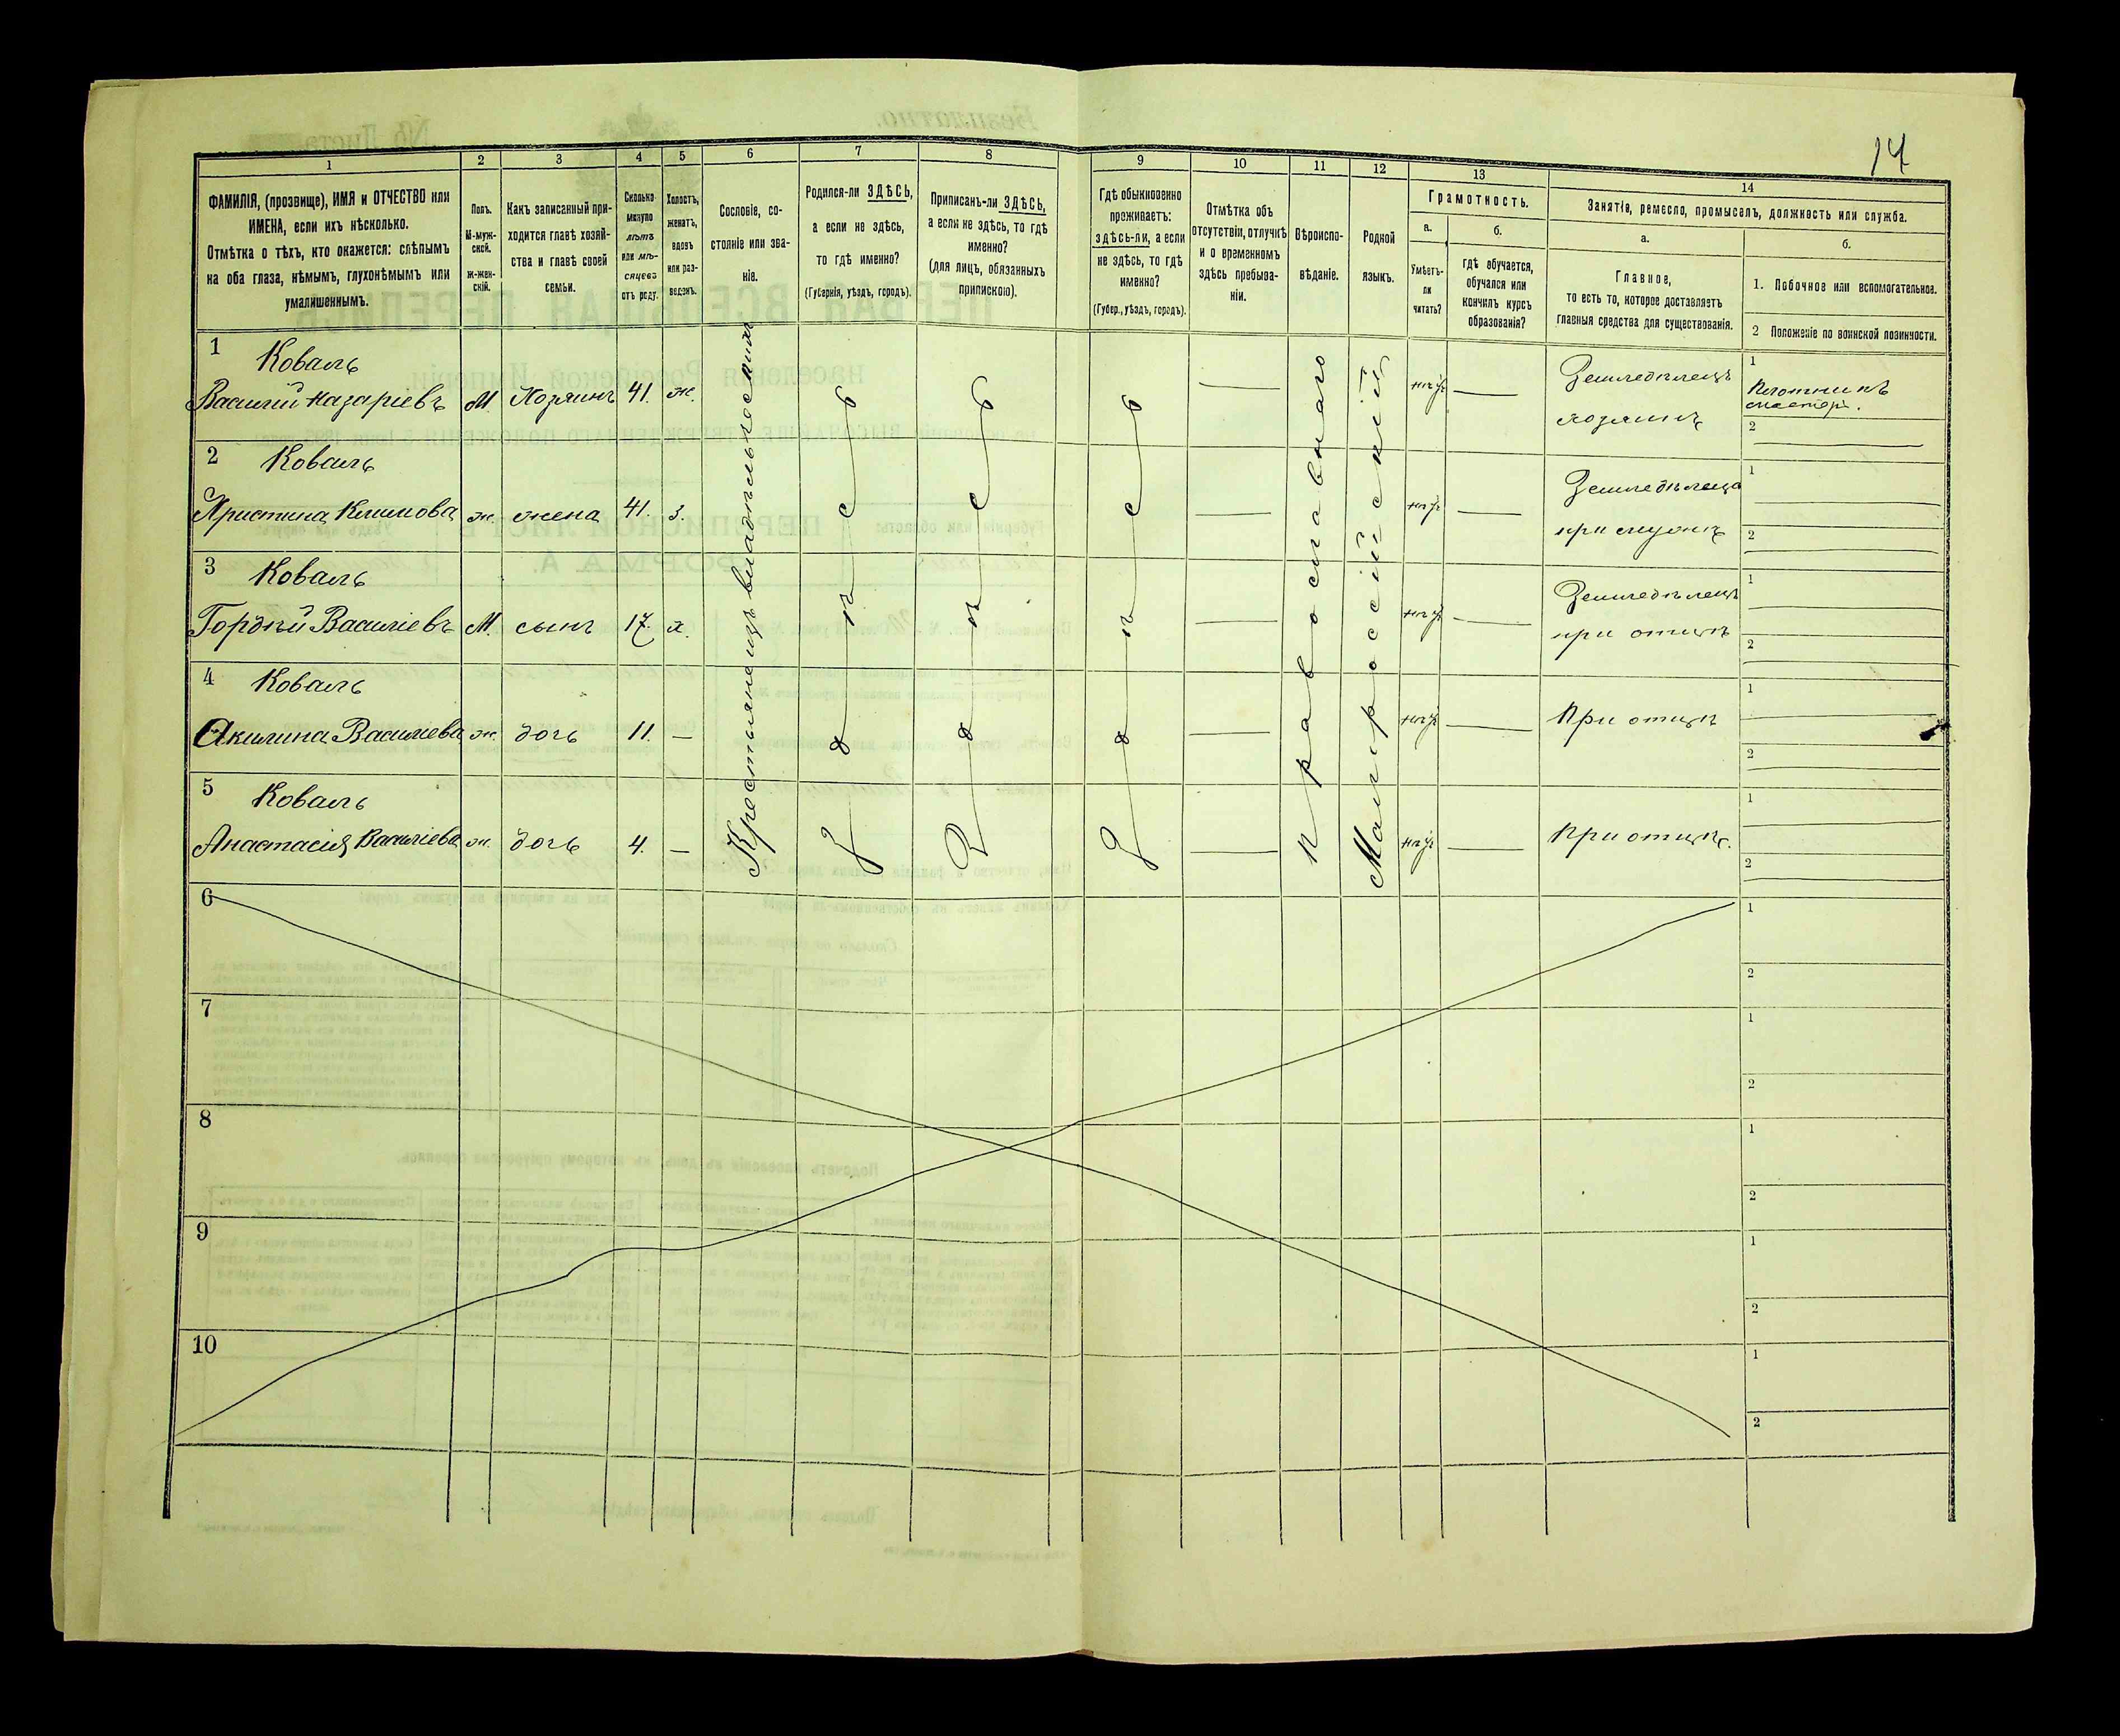 14
1 2 3 4 5 6 7 8 9 10 11 12 13 14
ФАМИЛІЯ, (прозвище), ИМЯ и ОТЧЕСТВО или
ИМЕНА, если ихъ нѣсколько.
Отмѣтка о тѣхъ, кто окажется: слѣпымъ
на оба глаза, нѣмымъ, глухонѣмымъ или
умалишеннымъ.
Полъ.
М-муж-
ской.
ж-жен-
скій.
Какъ записанный при-
ходится главѣ хозяй-
ства и главѣ своей
семьи.
Сколько
минуло
лѣтъ
или мѣ-
сяцевъ
отъ роду.
Холостъ,
женатъ,
вдовъ
или раз-
веденъ.
Сословіе, со-
стояніе или зва-
ніе.
Родился-ли ЗДѢСЬ,
а если не здѣсь,
то гдѣ именно?
(Губернія, уѣздъ, городъ).
Приписанъ-ли ЗДѢСЬ,
а если не здѣсь, то гдѣ
именно?
(для лицъ, обязанныхъ
припискою).
Гдѣ обыкновенно
проживаетъ:
здѣсь-ли, а если
не здѣсь, то гдѣ
именно?
(Губер., уѣздъ, городъ).
Отмѣтка объ
отсутствіи, отлучкѣ
и о временномъ
здѣсь пребыва-
ніи.
Вѣроиспо-
вѣданіе.
Родной
языкъ.
Грамотность.
а.
Умѣетъ-
ли
читать?
б.
гдѣ обучается,
обучался или
кончилъ курсъ
образованія?
Занятія, ремесло, промыселъ, должность или служба.
а.
Главное,
то есть то, которое доставляетъ
главныя средства для существованія.
б.
1. Побочное или вспомогательное.
2 Положеніе по воинской повинности.
1 Коваль
Василій Назаріевъ М. Хозяинъ 41. ж. нѣтъ Земледѣлецъ
хозяинъ
1 Плотникъ
мастер.
2
2 Коваль
Христина Климова ж. жена 41. з. нѣтъ Земледѣлица
при мужѣ
1
2
3 Коваль
Гордѣй Василіевъ М. сынъ 17. х. нѣтъ Земледѣлецъ
при отцѣ
1
2
4 Коваль
Акилина Василіева ж. дочь 11. — нѣтъ При отцѣ
1
2
5 Коваль
Анастасія Василіева ж. дочь 4. — нѣтъ При отцѣ.
1
2
Крестьянецъ владѣльческихъ
Здѣсь
Здѣсь
Здѣсь
Православнаго
Малороссійскій
6 1
2
7 1
2
8 1
2
9 1
2
10 1
2